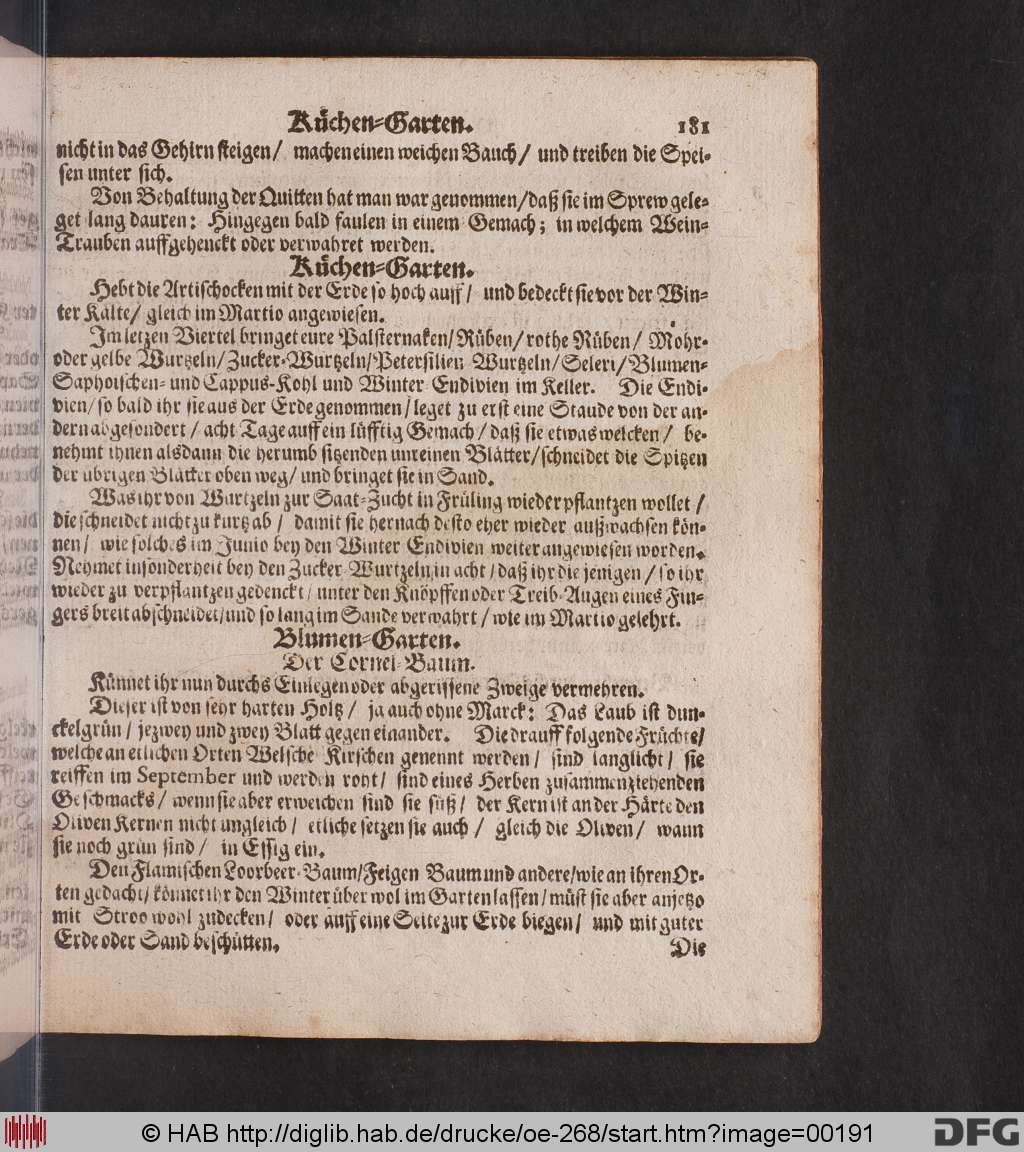 Küchen-Garten. 181
nicht in das Gehirn steigen/ machen einen weichen Bauch/ und treiben die Spei-
sen unter sich.
Von Behaltung der Quitten hat man war genommen/daß sie im Sprew gele-
get lang dauren: Hingegen bald faulen in einem Gemach; in welchem Wein-
Trauben auffgehenckt oder verwahret werden.
Küchen-Garten.
Hebt die Artischocken mit der Erde so hoch auff/ und bedeckt sie vor der Win-
ter Kälte/ gleich im Martio angewiesen.
Im letzen Viertel bringet eure Palsternaken/ Rüben/ rothe Rüben/ Mohr-
oder gelbe Wurtzeln/Zucker-Wurtzeln/Petersilien Wurtzeln/Seleri/Blumen-
Saphoischen- und Cappus-Kohl und Winter Endivien im Keller. Die Endi-
vien/ so bald ihr sie aus der Erde genommen/ leget zu erst eine Staude von der an-
dern abgesondert/ acht Tage auff ein lüfftig Gemach/ daß sie etwas welcken/ be-
nehmt ihnen alsdann die herumb sitzenden unreinen Blätter/schneidet die Spitzen
der übrigen Blätter oben weg/ und bringet sie in Sand.
Was ihr von Wurtzeln zur Saat-Zucht in Früling wieder pflantzen wollet/
die schneidet nicht zu kurtz ab/ damit sie hernach desto eher wieder außwachsen kön-
nen/ wie solches im Junio bey den Winter Endivien weiter angewiesen worden.
Nehmet insonderheit bey den Zucker-Wurtzeln in acht/ daß ihr die jenigen/ so ihr
wieder zu verpflantzen gedenckt/ unter den Knöpffen oder Treib-Augen eines Fin-
gers breit abschneidet/und so lang im Sande verwahrt/ wie im Martio gelehrt.
Blumen-Garten.
Der Cornel-Baum.
Künnet ihr nun durchs Einlegen oder abgerissene Zweige vermehren.
Dieser ist von sehr harten Holtz/ ja auch ohne Marck: Das Laub ist dun-
ckelgrün/ je zwey und zwey Blatt gegen einander. Die drauff folgende Früchte/
welche an etlichen Orten Welsche Kirschen genennt werden/ sind langlicht/ sie
reiffen im September und werden roht/ sind eines Herben zusammenziehenden
Geschmacks/ wenn sie aber erweichen sind sie süß/ der Kern ist an der Härte den
Oliven Kernen nicht ungleich/ etliche setzen sie auch/ gleich die Oliven/ wann
sie noch grün sind/ in Essig ein.
Den Flamischen Loorbeer-Baum/Feigen Baum und andere/wie an ihren Or-
ten gedacht/ könnet ihr den Winter über wol im Garten lassen/ müst sie aber anjetzo
mit Stroo wohl zudecken/ oder auff eine Seite zur Erde biegen/ und mit guter
Erde oder Sand beschütten.
Die
© HAB http://diglib.hab.de/drucke/oe-268/start.htm?image=00191
DFG